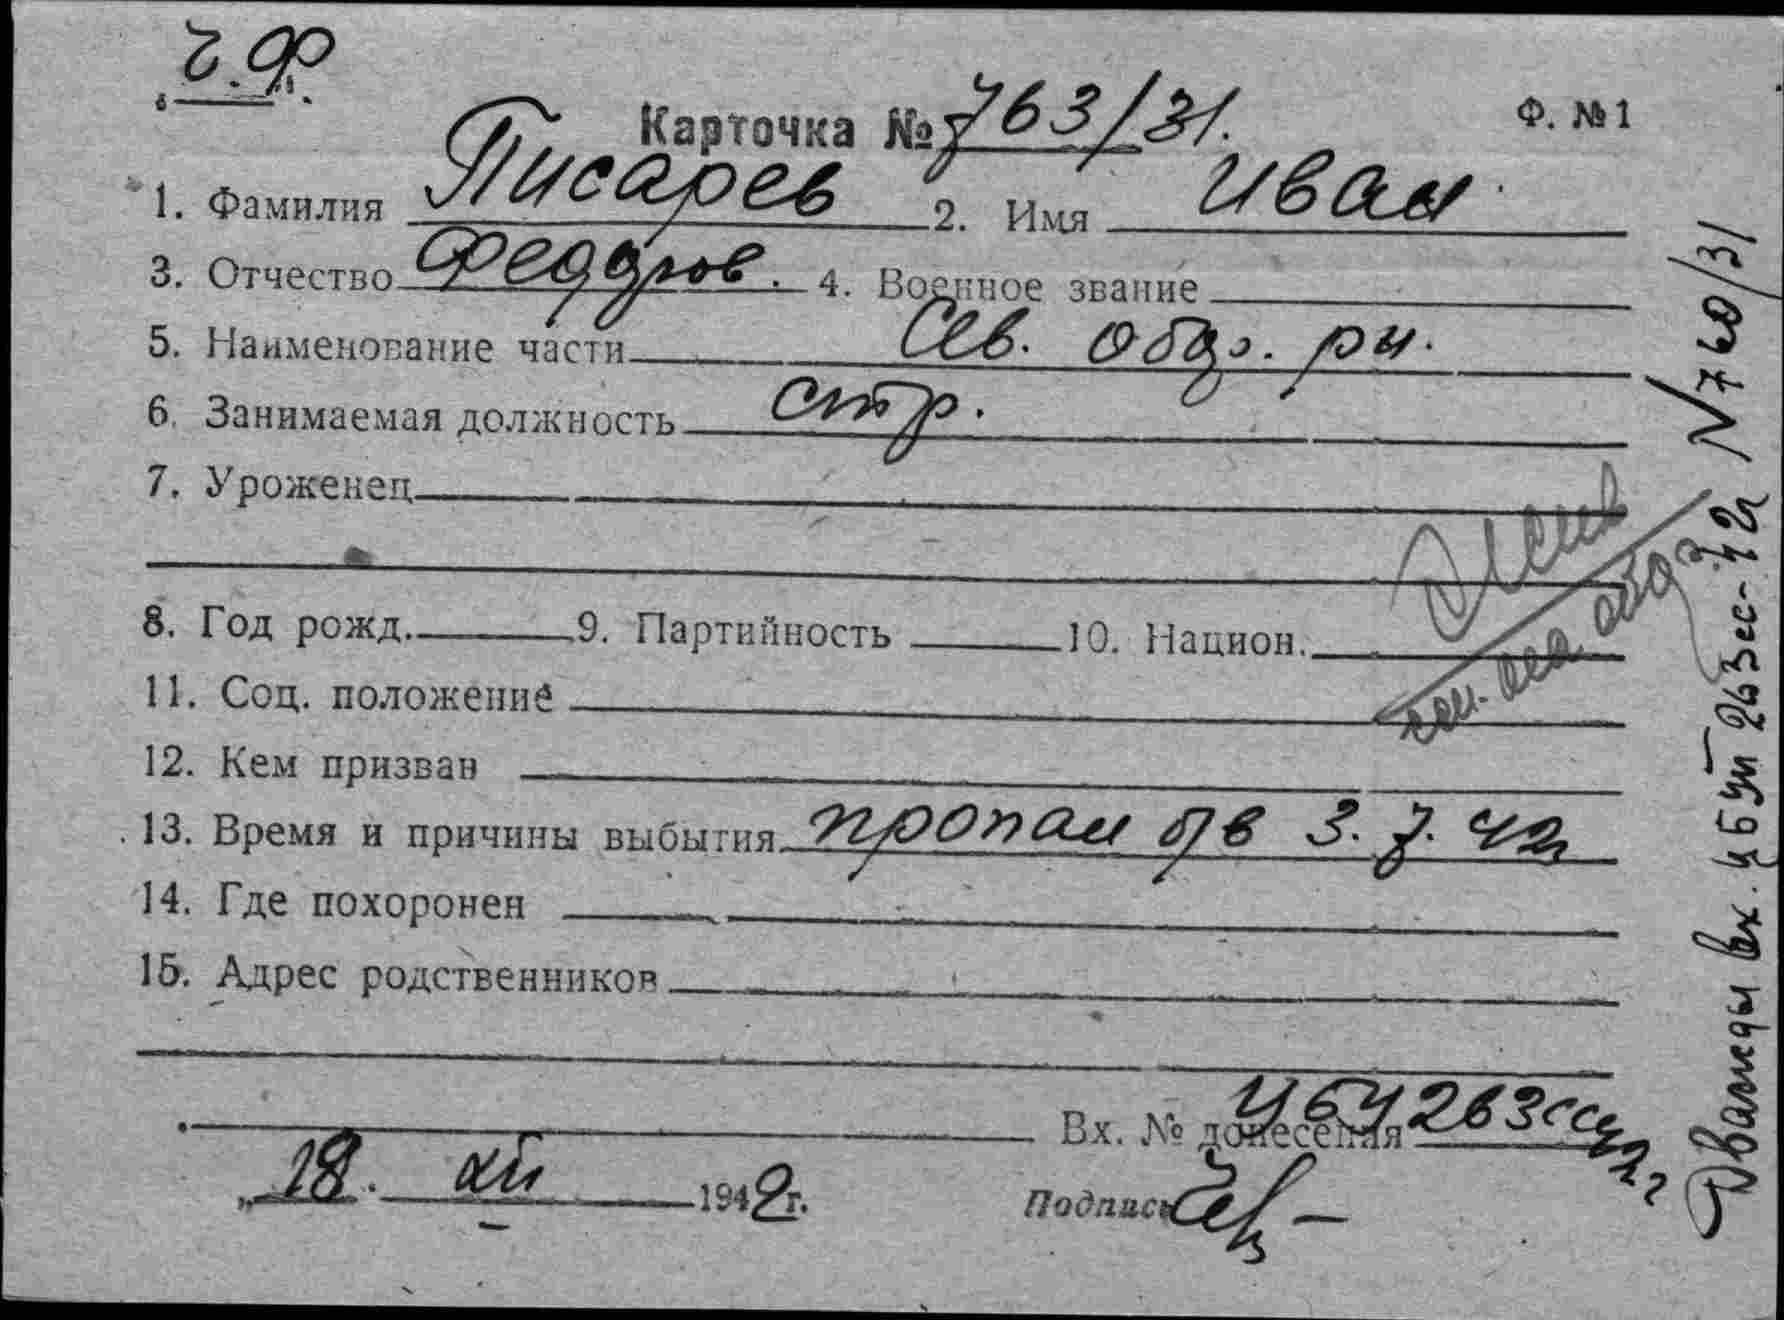 Ч.Ф.
Карточка № 763/31.
Ф. № 1
1. Фамилия Писарев 2. Имя Иван
3. Отчество Федоров. 4. Военное звание
5. Наименование части Сев. обо. рн.
6. Занимаемая должность стр.
7. Уроженец
8. Год рожд. 9. Партийность 10. Национ.
11. Соц. положение
12. Кем призван
13. Время и причины выбытия пропал б/в 3.7.42
14. Где похоронен
15. Адрес родственников
Вх. № донесения ЦБУ 263сс 42г
18. XII 1942г.
Подпись
Дважды вх. ЦБУп 263сс-42 N 760/31